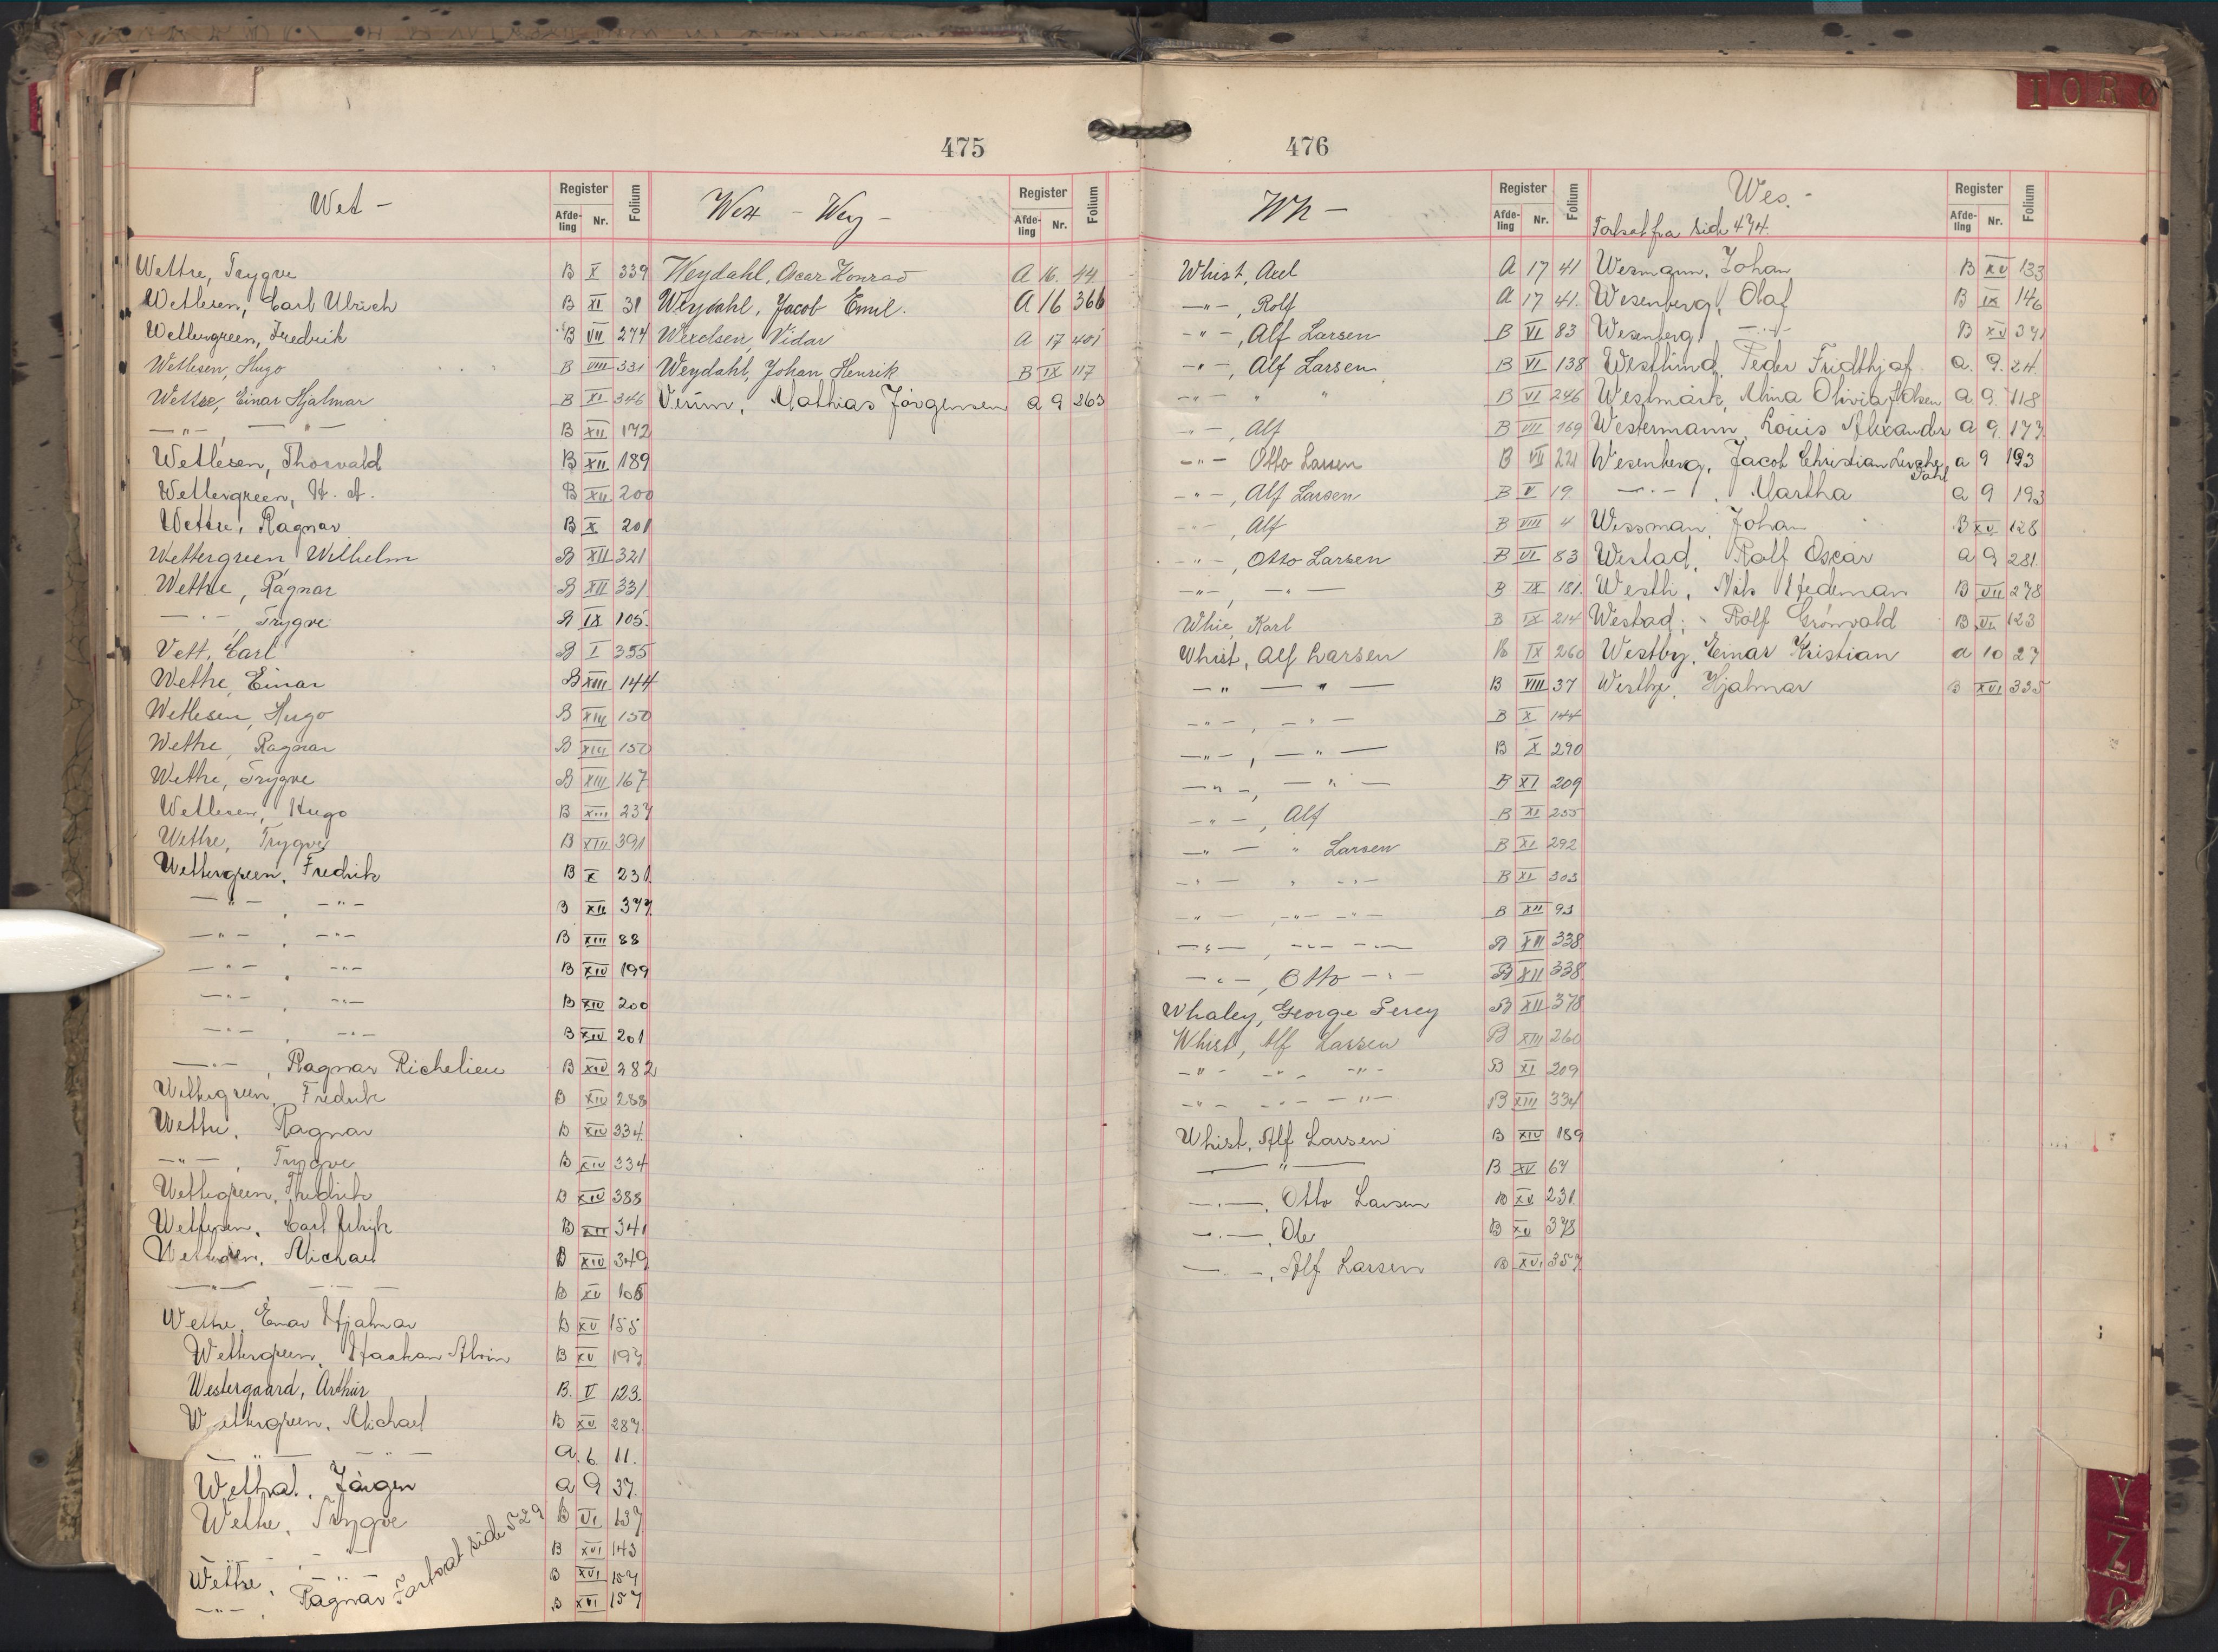 475
Wet –
Register
Afde-ling
Nr.
Folium
Wettre, Trygve B X 339
Wetlesen, Carl Ulrich B XI 31
Wettergreen, Fredrik B VII 274
Wetlesen, Hugo B VIII 331
Wettre, Einar Hjalmar B XI 346
—"— , — " — B XII 172
Wetlesen, Thorvald B XII 189
Wettergreen, H. A. B XII 200
Wettre, Ragnar B X 201
Wettergreen Wilhelm B XII 321
Wethre, Ragnar B XII 331
— " — , Trygve B IX 105.
Vett, Carl B I 355
Wethre, Einar B XIII 144
Wetlesen, Hugo B XIII 150
Wethre, Ragnar B XIII 150
Wethre, Trygve B XIII 167
Wetlesen, Hugo B XIII 237
Wethre, Trygve B XIII 391
Wettergreen, Fredrik B X 231
—"— , —"— B XII 377
—"— , —"— B XIII 88
—"— , —"— B XIV 199
—"— , —"— B XIV 200
—"— , —"— B XIV 201
—"— , Ragnar Richelieu B XIV 282
Wettergreen, Fredrik B XIV 288
Wettre, Ragnar B XIV 334
—"— , Trygve B XIV 334
Wettergreen, Fredrik B XIV 388
Wetlesen, Carl B XII 341
Michael B XIV 349
—"— —"— B XV 106
Wettre, Einar Hjalmar B XV 155
Wettergreen, Haakon Alvin B XV 197
Westergaard, Arthur B. V 123.
Wettergreen, Michael B XV 287
— " — — " — a 6. 11.
Wethal, Jørgen a 9 37.
Wethre, Trygve B VI 137
— " — , — " — B XVI 143
Wethre, — " — B XVI 157
—"— , Ragnar B XVI 157
Fortsat side 529
Wex – Wey –
Register
Afde-ling
Nr.
Folium
Weydahl, Oscar Konrad A 16. 44
Weydahl, Jacob Emil. A 16 366
Wexelsen, Vidar A 17 401
Weydahl, Johan Henrik B IX 117
Mathias Jörgensen a 9 263
476
Wh –
Register
Afde-ling
Nr.
Folium
Whist, Axel A 17 41
—"— , Rolf A 17 41.
—"— , Alf Larsen B VI 83
—"— , Alf Larsen B VI 138
—"— " " B VI 246
—"— , Alf B VII 169
—"— Otto Larsen B VII 221
—"— , Alf Larsen B V 19
—"— , Alf B VIII 4
—"— , Otto Larsen B VI 83
—"— , —"— B IX 181.
Whie, Karl B IX 214
Whist, Alf Larsen B IX 260
—"— —"— B VIII 37
—"— , —"— B X 144
—"— , —"— B X 290
—"— , —"— B XI 209
—"— , Alf B XI 255
—"— " Larsen B XI 292
—"— " —"— B XI 303
—"— , —"— —"— B XII 93
—"— , —"— —"— B XII 338
—"— , Otto —"— B XII 338
Whaley, George Percy B XII 378
Whist, Alf Larsen B XIII 260
—"— —"— —"— B XI 209
—"— —"— —"— B XIII 334
Whist, Alf Larsen B XIV 189
— " — B XV 67
—"— , Otto Larsen B XV 231
—"— , Ole B XV 378
—"— , Alf Larsen B XVI 357
Wes. –
Fortsat fra side 474.
Register
Afde-ling
Nr.
Folium
Wesmann, Johan B XV 133
Wesenberg, Olaf B IX 146
Wesenberg, —"— B XV 371
Westlund, Peder Fridthjof a. 9. 24
Westmark, Mina Olivia f. Olsen a 9. 118
Westermann, Louis Alexander a 9. 177
Wesenberg, Jacob Christian Lerche Dahl a 9 193
—"— , Martha a 9 193
Wessman, Johan B XV 128
Westad, Rolf Oscar a 9 281
Westh, Nils Hedeman B VIII 278
Westad, Rolf Grönvold B VII 123
Westby, Einar Kristian a 10 27
Westbye, Hjalmar B XVI 335
I O R Ø
Y
Z